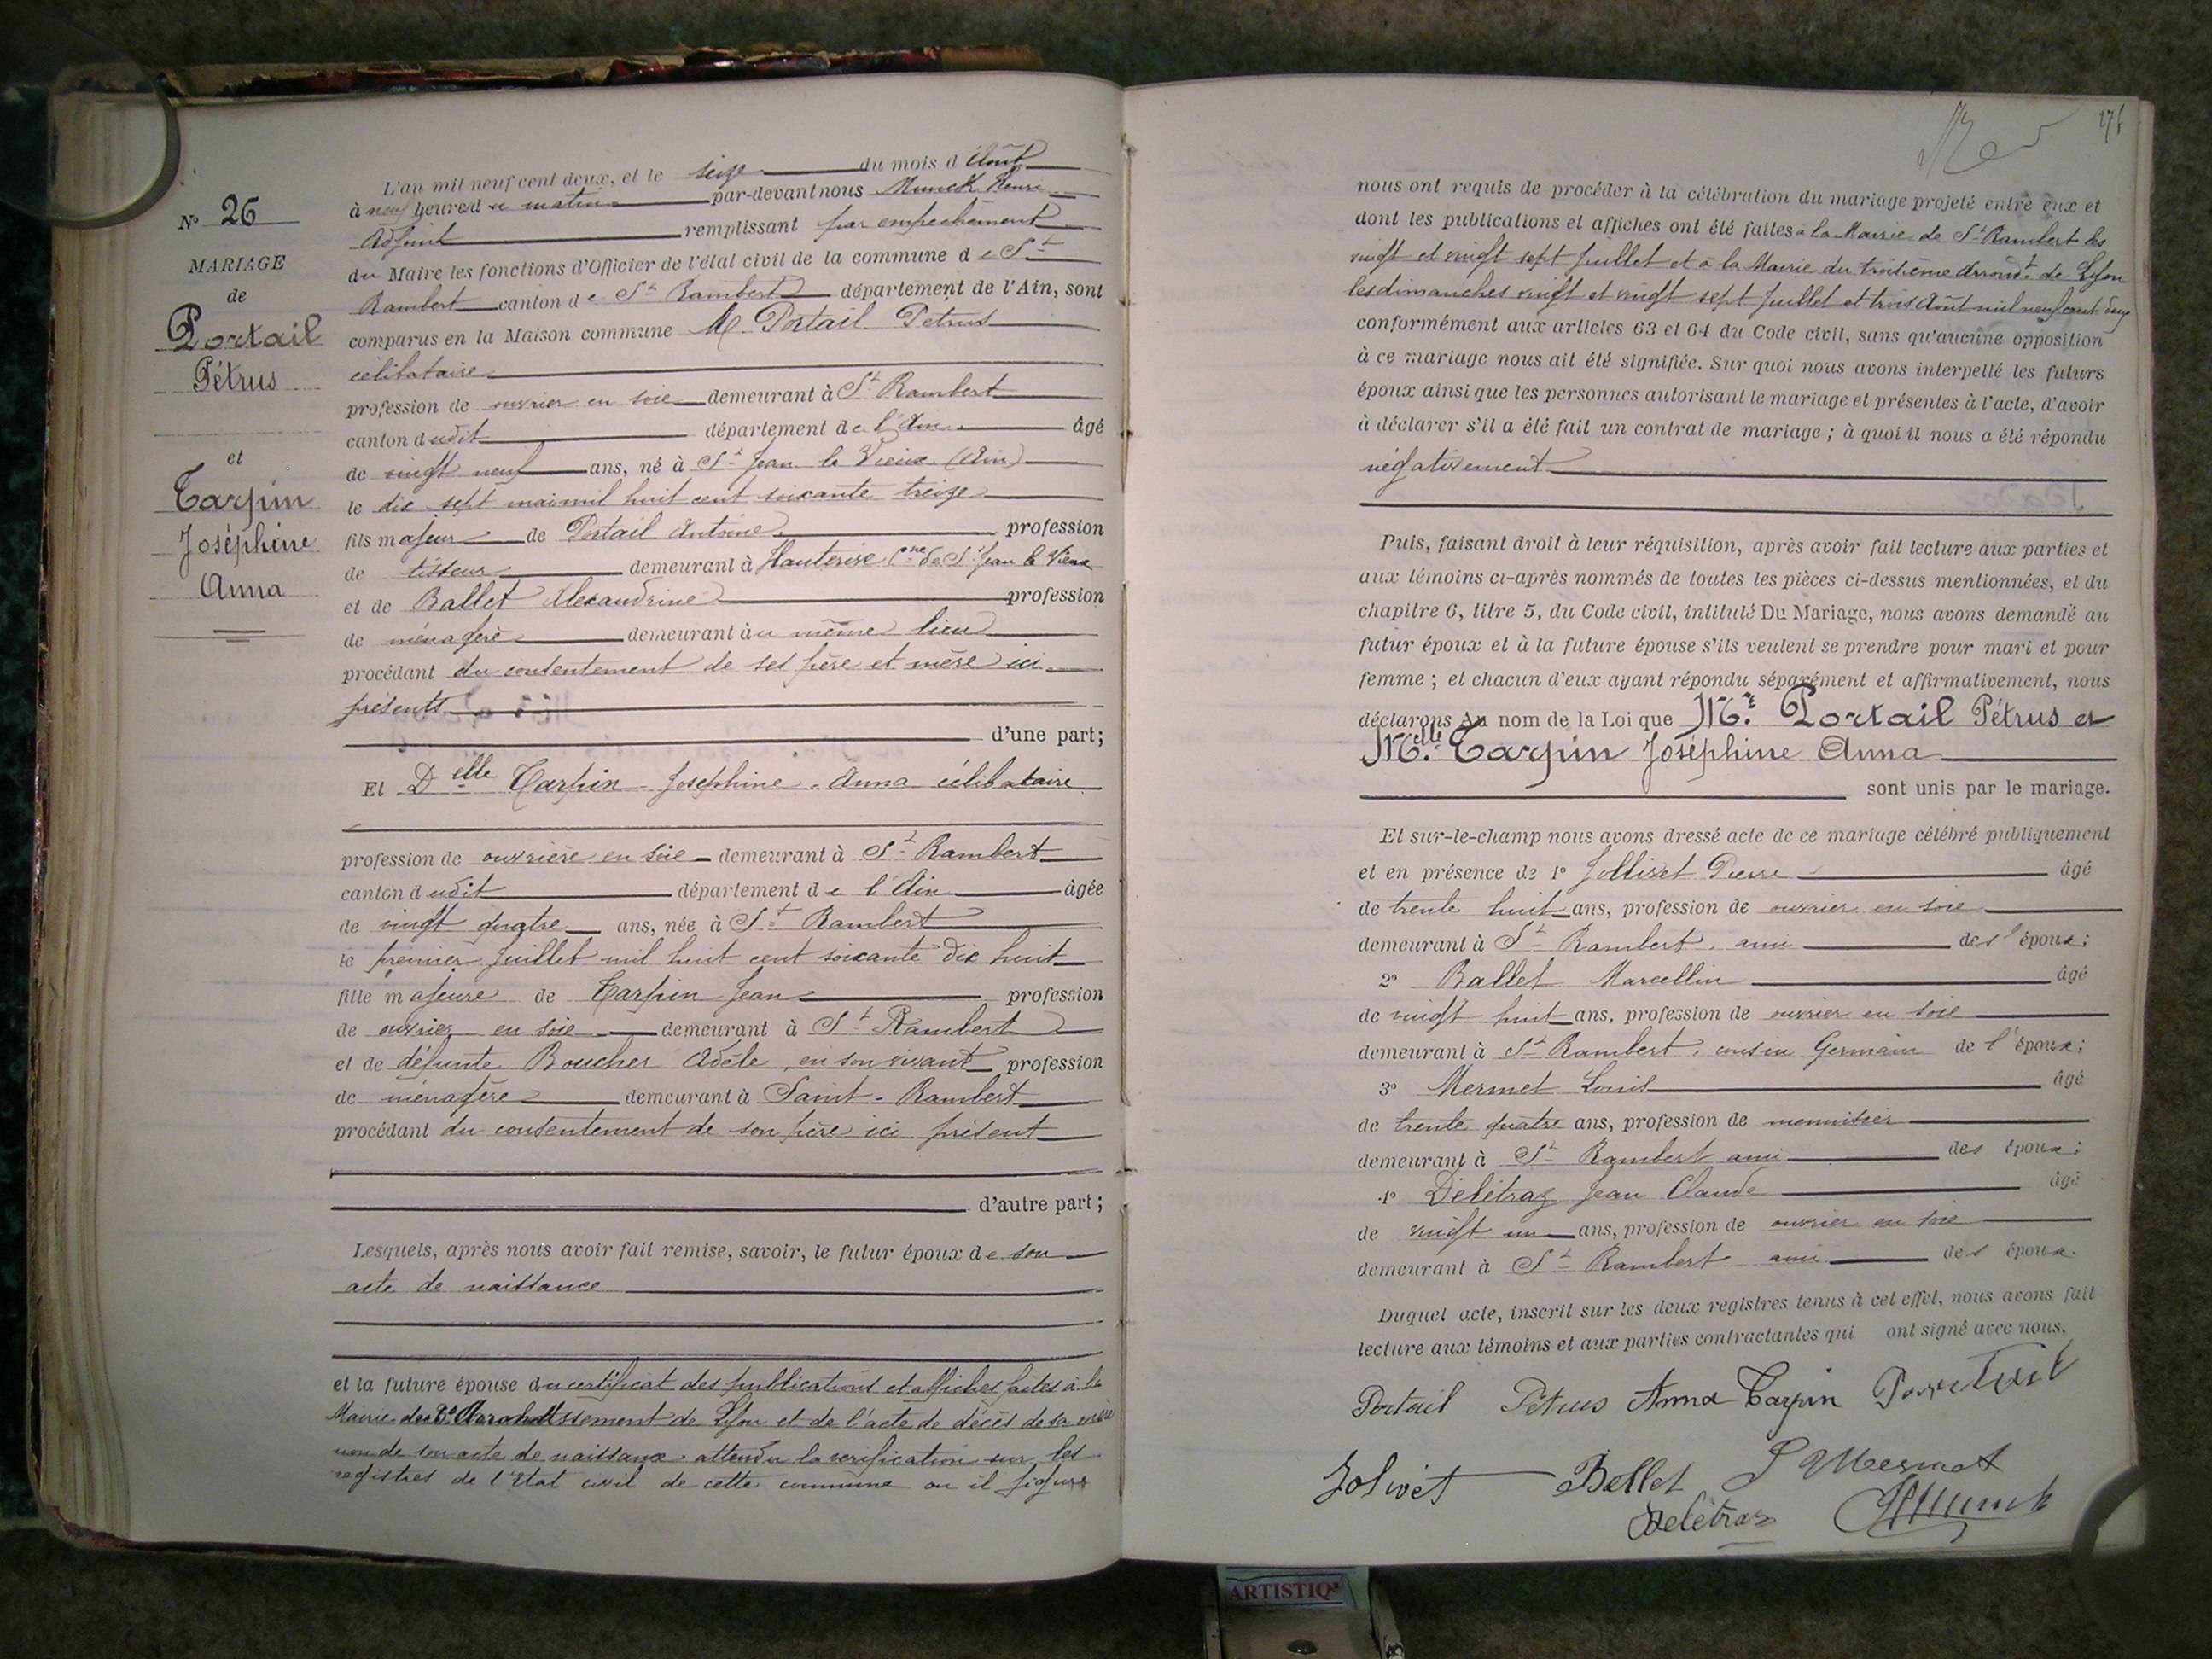 N° 26
MARIAGE
de
Portail
Pétrus
et
Tarpin
Joséphine
Anna
L'an mil neuf cent deux, et le seize du mois d'Août
à neuf heures du matin par-devant nous Munck Henri
Adjoint remplissant par empêchement
du Maire les fonctions d'Officier de l'état civil de la commune de St
Rambert canton de St Rambert département de l'Ain, sont
comparus en la Maison commune M. Portail Petrus
célibataire
profession de ouvrier en soie demeurant à St Rambert
canton dudit département de l'Ain âgé
de vingt neuf ans, né à St Jean le Vieux (Ain)
le dix sept mai mil huit cent soixante treize
fils majeur de Portail Antoine profession
de tisseur demeurant à Hauterive Cne de St Jean le Vieux
et de Ballet Alexandrine profession
de ménagère demeurant au même lieu
procédant du consentement de ses père et mère ici
présents
d'une part;
Et Delle Tarpin Joséphine Anna célibataire
profession de ouvrière en soie demeurant à St Rambert
canton dudit département de l'Ain âgée
de vingt quatre ans, née à St Rambert
le premier Juillet mil huit cent soixante dix huit
fille majeure de Tarpin Jean profession
de ouvrier en soie demeurant à St Rambert
et de défunte Boucher Adèle, en son vivant profession
de ménagère demeurant à Saint-Rambert
procédant du consentement de son père ici présent
d'autre part;
Lesquels, après nous avoir fait remise, savoir, le futur époux de son
acte de naissance
et la future épouse du certificat des publications et affiches faites à la
Mairie du 3e Arrondissement de Lyon et de l'acte de décès de sa mère
non de son acte de naissance attendu la vérification sur les
registres de l'Etat civil de cette commune ou il figure
nous ont requis de procéder à la célébration du mariage projeté entre eux et
dont les publications et affiches ont été faites à la Mairie de St Rambert les
vingt et vingt sept Juillet et à la Mairie du troisième Arrondt de Lyon
les dimanches vingt et vingt sept Juillet et trois Août mil neuf cent deux
conformément aux articles 63 et 64 du Code civil, sans qu'aucune opposition
à ce mariage nous ait été signifiée. Sur quoi nous avons interpellé les futurs
époux ainsi que les personnes autorisant le mariage et présentes à l'acte, d'avoir
à déclarer s'il a été fait un contrat de mariage; à quoi il nous a été répondu
négativement
Puis, faisant droit à leur réquisition, après avoir fait lecture aux parties et
aux témoins ci-après nommés de toutes les pièces ci-dessus mentionnées, et du
chapitre 6, titre 5, du Code civil, intitulé Du Mariage, nous avons demandé au
futur époux et à la future épouse s'ils veulent se prendre pour mari et pour
femme; et chacun d'eux ayant répondu séparément et affirmativement, nous
déclarons au nom de la Loi que Mr. Portail Pétrus et
Melle. Tarpin Joséphine Anna
sont unis par le mariage.
Et sur-le-champ nous avons dressé acte de ce mariage célébré publiquement
et en présence de 1° Jollivet Pierre âgé
de trente huit ans, profession de ouvrier en soie
demeurant à St Rambert, ami des époux;
2° Ballet Marcellin âgé
de vingt huit ans, profession de ouvrier en soie
demeurant à St Rambert, cousin Germain de l'époux;
3° Mermet Louis âgé
de trente quatre ans, profession de menuisier
demeurant à St Rambert ami des époux;
4° Délétraz Jean Claude âgé
de vingt un ans, profession de ouvrier en soie
demeurant à St Rambert ami des époux.
Duquel acte, inscrit sur les deux registres tenus à cet effet, nous avons fait
lecture aux témoins et aux parties contractantes qui ont signé avec nous.
Portail Pétrus Anna Tarpin
Jolivet Ballet L Mermet
Delétraz HMunck
ARTISTIQ